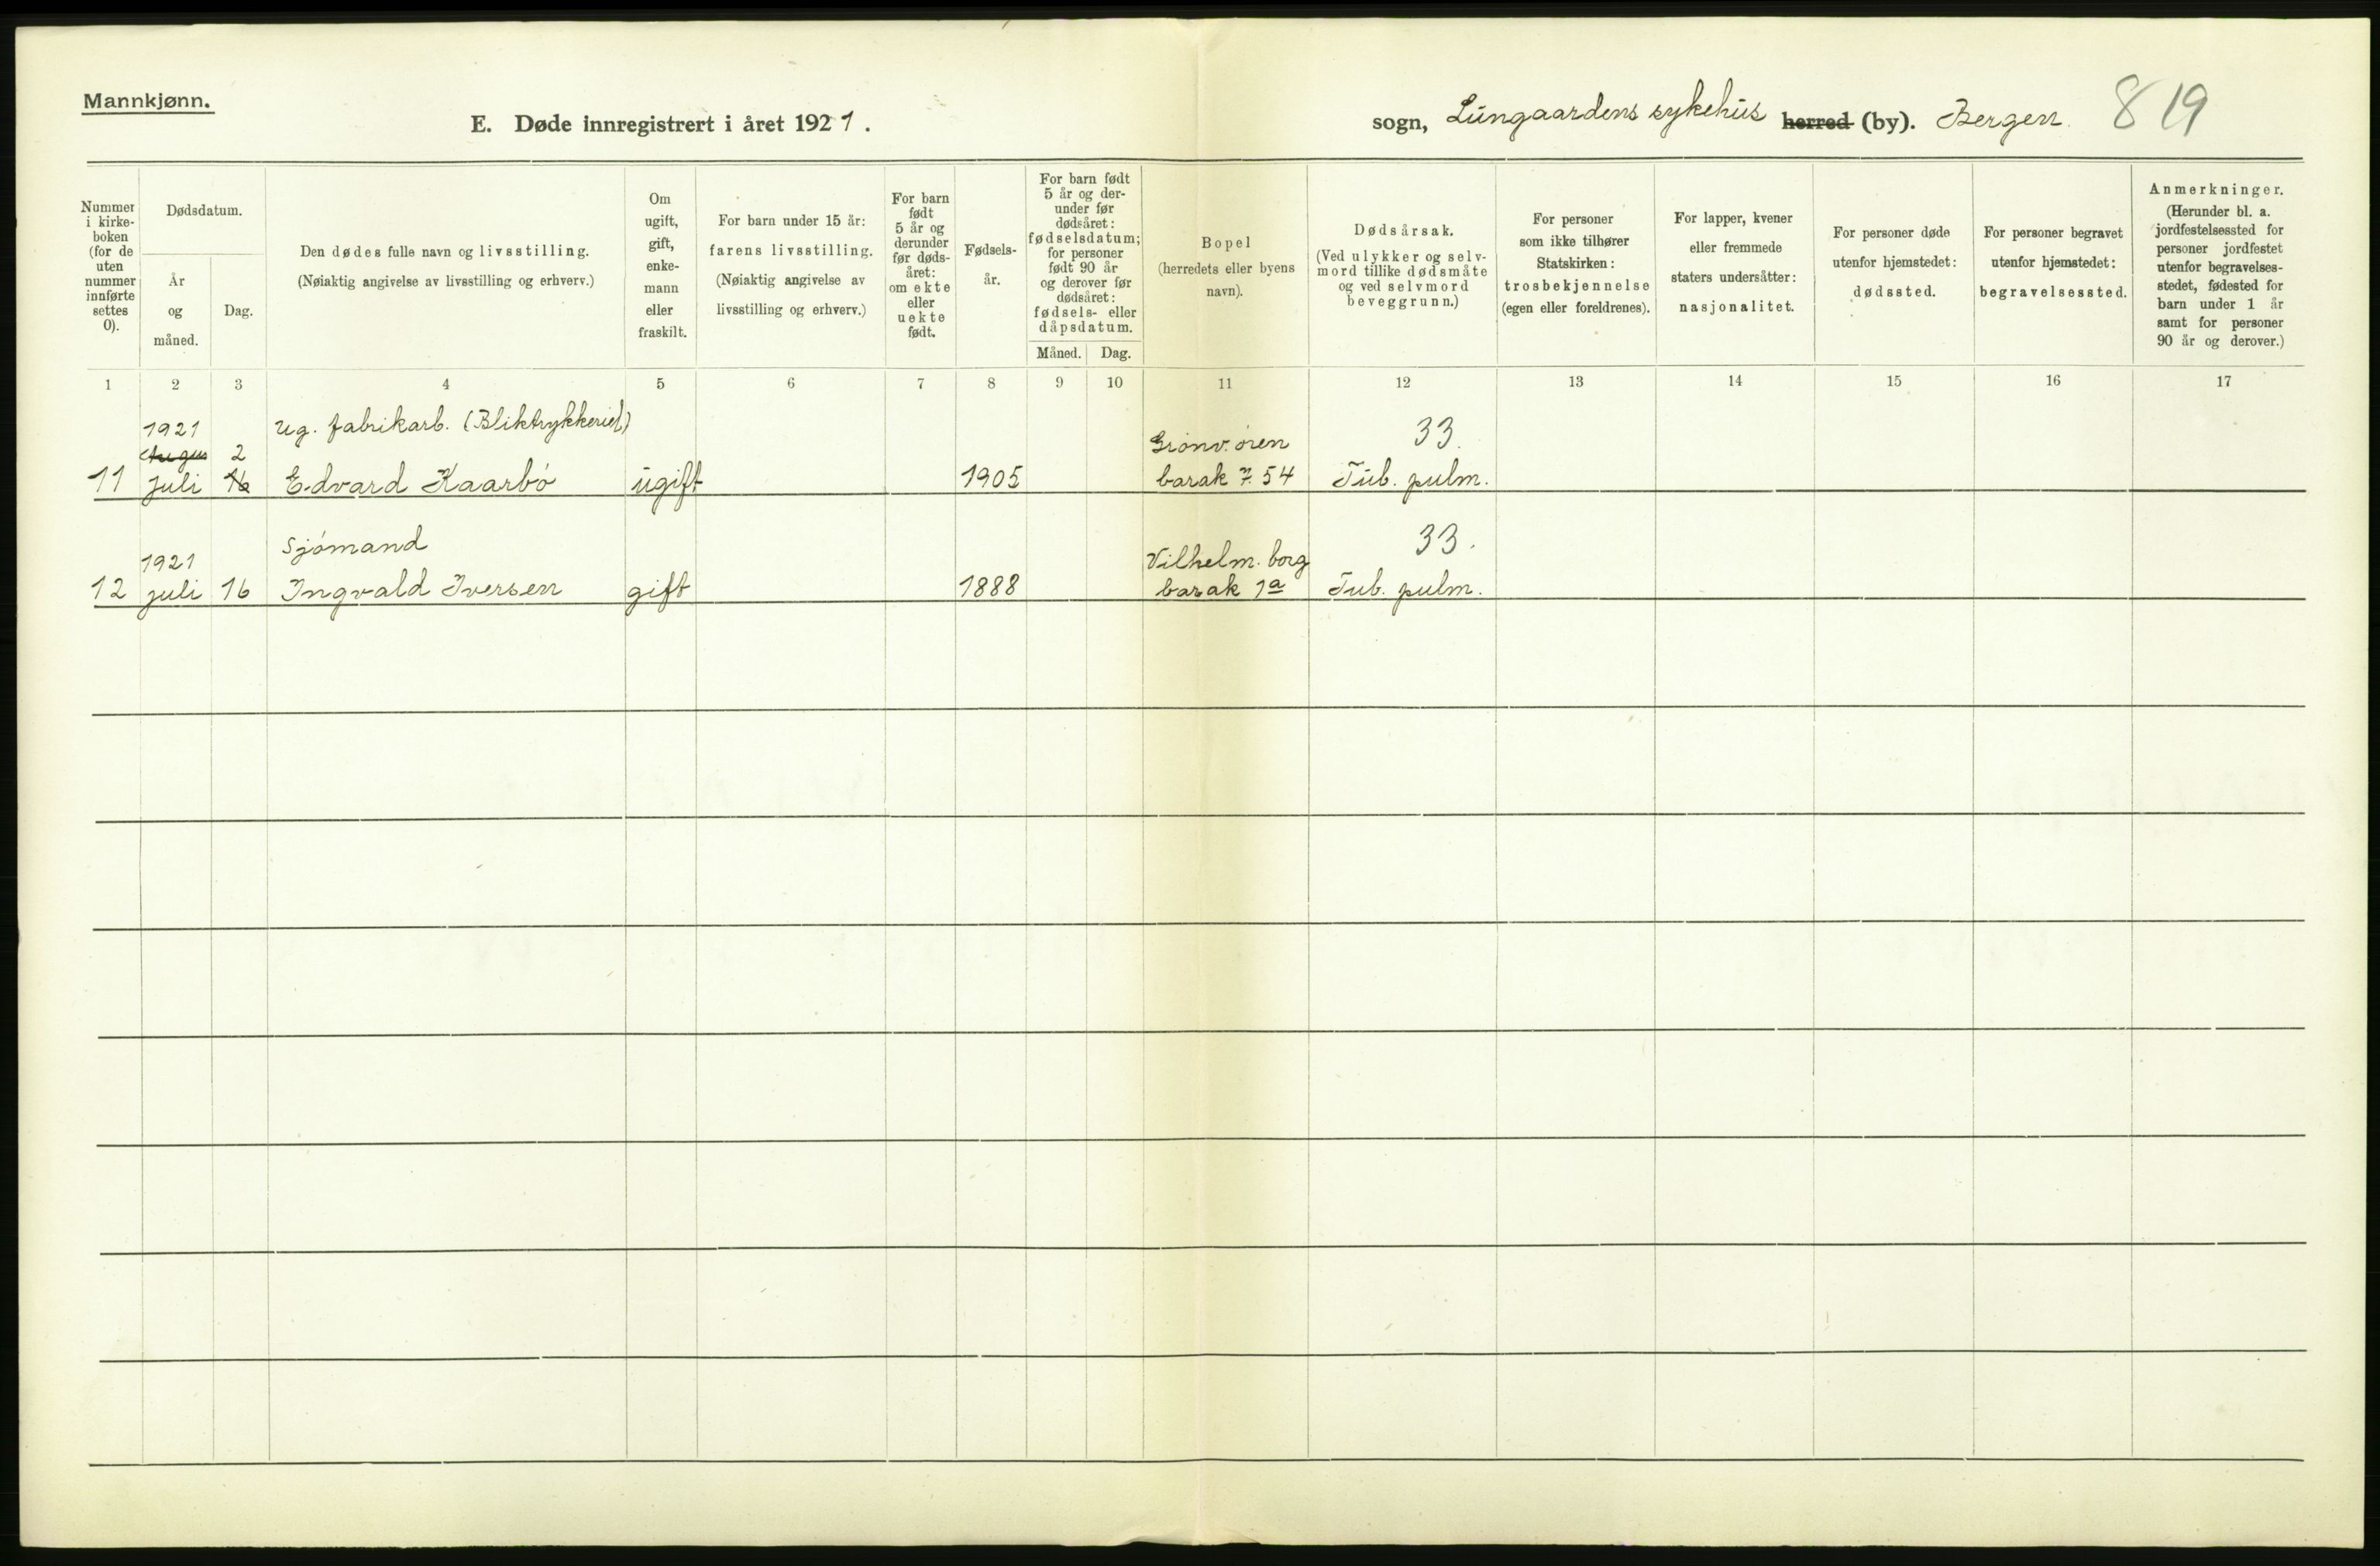 Mannkjønn.
E. Døde innregistrert i året 1921.
sogn, Lungaardens sykehus herred (by). Bergen. 819
Nummer i kirke- boken (for de uten nummer innførte settes 0).
Dødsdatum.
År og måned.
Dag.
Den dødes fulle navn og livsstilling.
(Nøiaktig angivelse av livsstilling og erhverv.)
Om ugift, gift, enke- mann eller fraskilt.
For barn under 15 år:
farens livsstilling.
(Nøiaktig angivelse av livsstilling og erhverv.)
For barn født 5 år og derunder før døds- året: om ekte eller uekte født.
Fødsels- år.
For barn født 5 år og der- under før dødsåret: fødselsdatum; for personer født 90 år og derover før dødsåret: fødsels- eller dåpsdatum.
Måned. Dag.
Bopel
(herredets eller byens navn).
Dødsårsak.
(Ved ulykker og selv- mord tillike dødsmåte og ved selvmord beveggrunn.)
For personer som ikke tilhører Statskirken: trosbekjennelse (egen eller foreldrenes).
For lapper, kvener eller fremmede staters undersåtter: nasjonalitet.
For personer døde utenfor hjemstedet: dødssted.
For personer begravet utenfor hjemstedet: begravelsessted.
Anmerkninger.
(Herunder bl. a. jordfestelsessted for personer jordfestet utenfor begravelses- stedet, fødested for barn under 1 år samt for personer 90 år og derover.)
1 2 3 4 5 6 7 8 9 10 11 12 13 14 15 16 17
1921 Ug. fabrikarb. (Bliktrykkeriet) 33.
August 2 Grønv. ören
11 juli 16 Edvard Kaarbö ugift 1905 barak 7. 54 Tub. pulm.
Sjömand 33.
1921 Vilhelm. borg
12 juli 16 Ingvald Iversen gift 1888 barak 1a Tub. pulm.